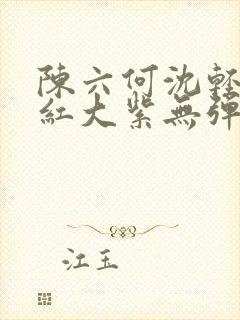 陳六何沈輕
紅大紫無彈
江玉